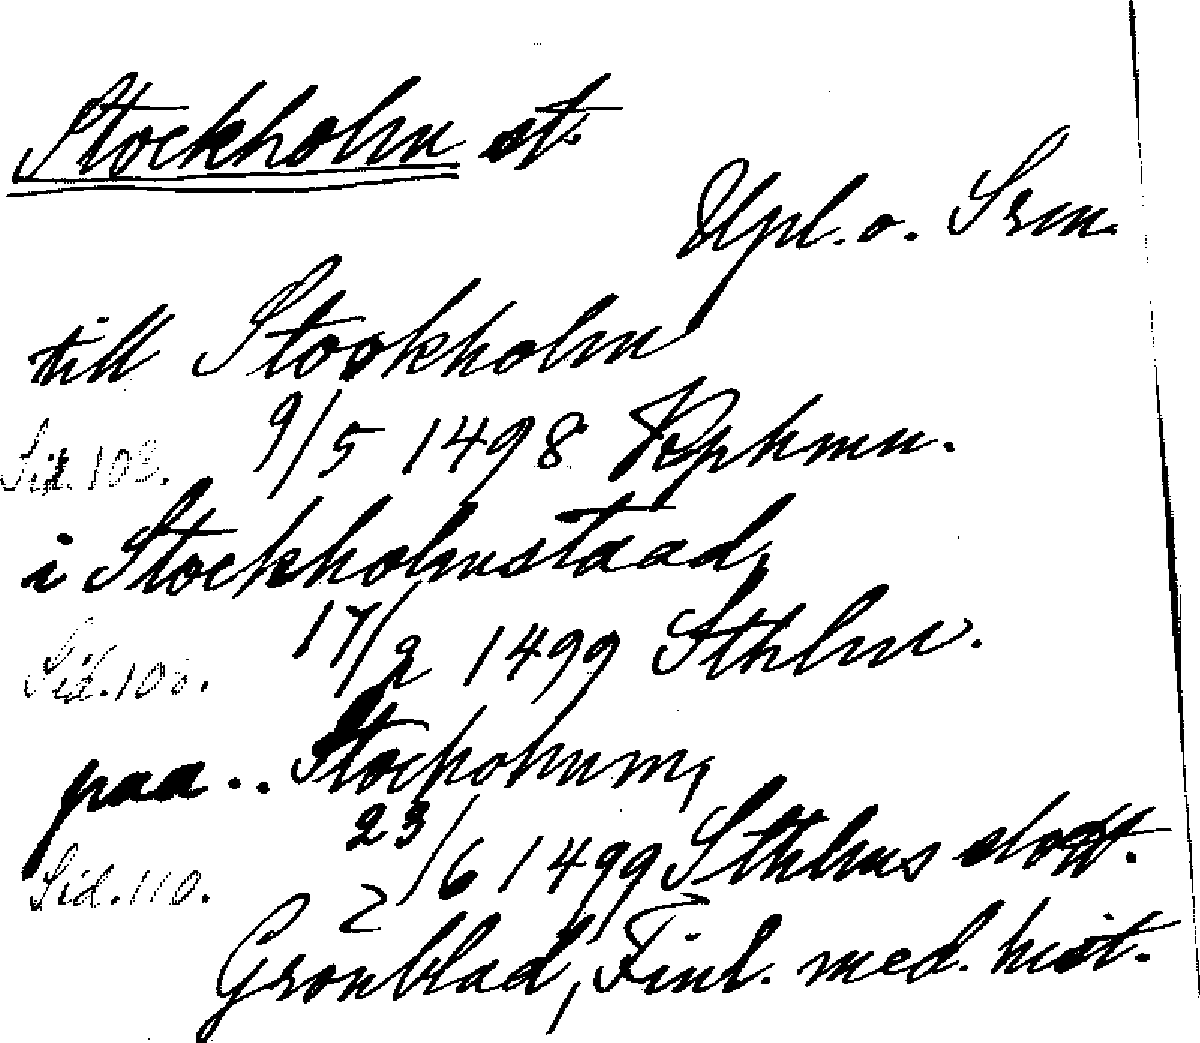 Stockholm st.
Upl. o. Srm.
till Stockholm
Sid. 103. 9/5 1498 Rpkmn.
i Stockholmstaad,
Sid. 17/2 1499 Sthlm.
paa .. Stocholmm,
Sid. 110. 23/6 1499 Sthlms slott.
Grönblad, Finl. med. hist.